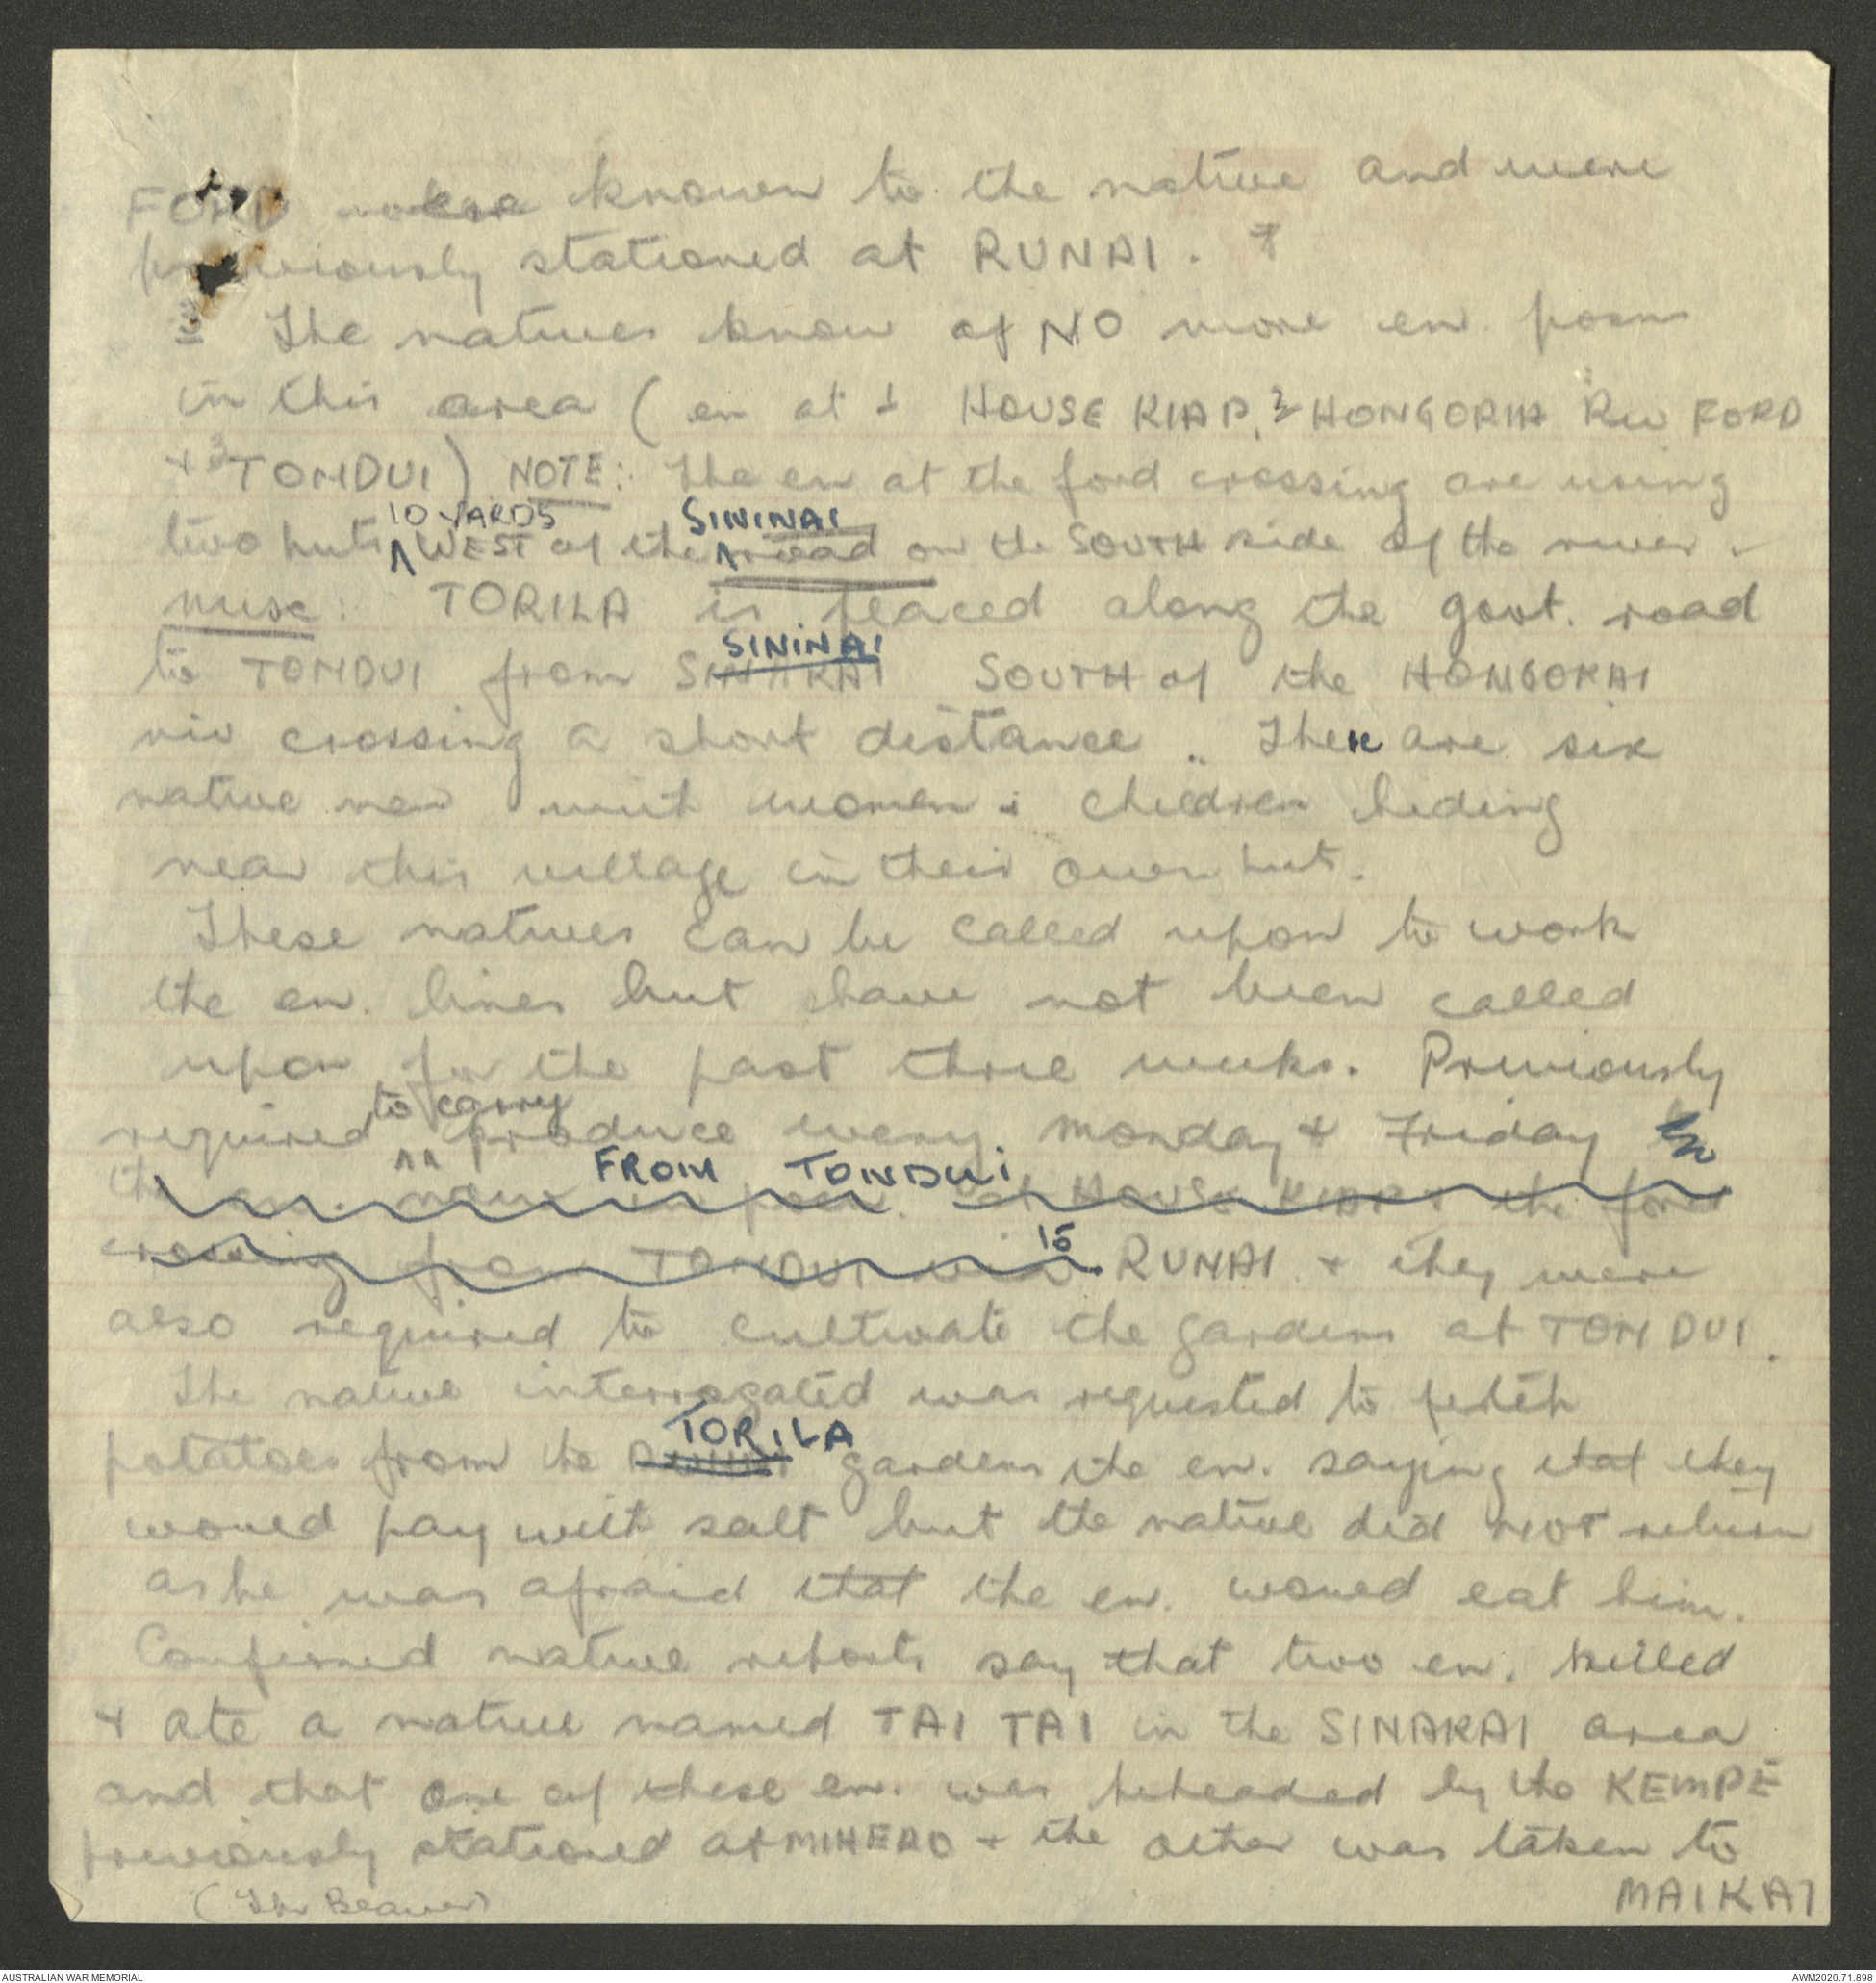 FORD known to the native and were
previously stationed at RUNAI.
3 The natives know of NO more en posns
in this area (en at 1 HOUSE KIAP, 2 HONGORIA Riv FORD
+ 3 TONDUI) NOTE: The en at the ford crossing are using
10 YARDS SININAI
two huts WEST of the road on the SOUTH side of the river
MISC: TORILA is placed along the govt. road
SININAI
to TONDUI from SINAKAI SOUTH of the HONGORAI
riv crossing a short distance.. There are six
native men with women & children hiding
near this village in their own hut.
These natives can be called upon to work
the en. lines but have not been called
upon for the past three weeks. Previously
to carry
required produce every. Monday & Friday
FROM TONDUI
the en. posn. at HOUSE KIAP & the ford
to
crossing from TONDUI RUNAI & they were
also required to cultivate the gardens at TONDUI.
The native interrogated was requested to fetch
TORILA
potatoes from the RUNAI gardens the en. saying that they
would pay with salt but the native did not return
as he was afraid that the en. would eat him.
Confirmed native reports say that two en. killed
& ate a native named TAI TAI in the SINAKAI area
and that one of these en. was beheaded by the KEMPE
previously stationed at MIHERO & the other was taken to
MAIKAI
(The Beaver)
AUSTRALIAN WAR MEMORIAL
AWM2020.71.898